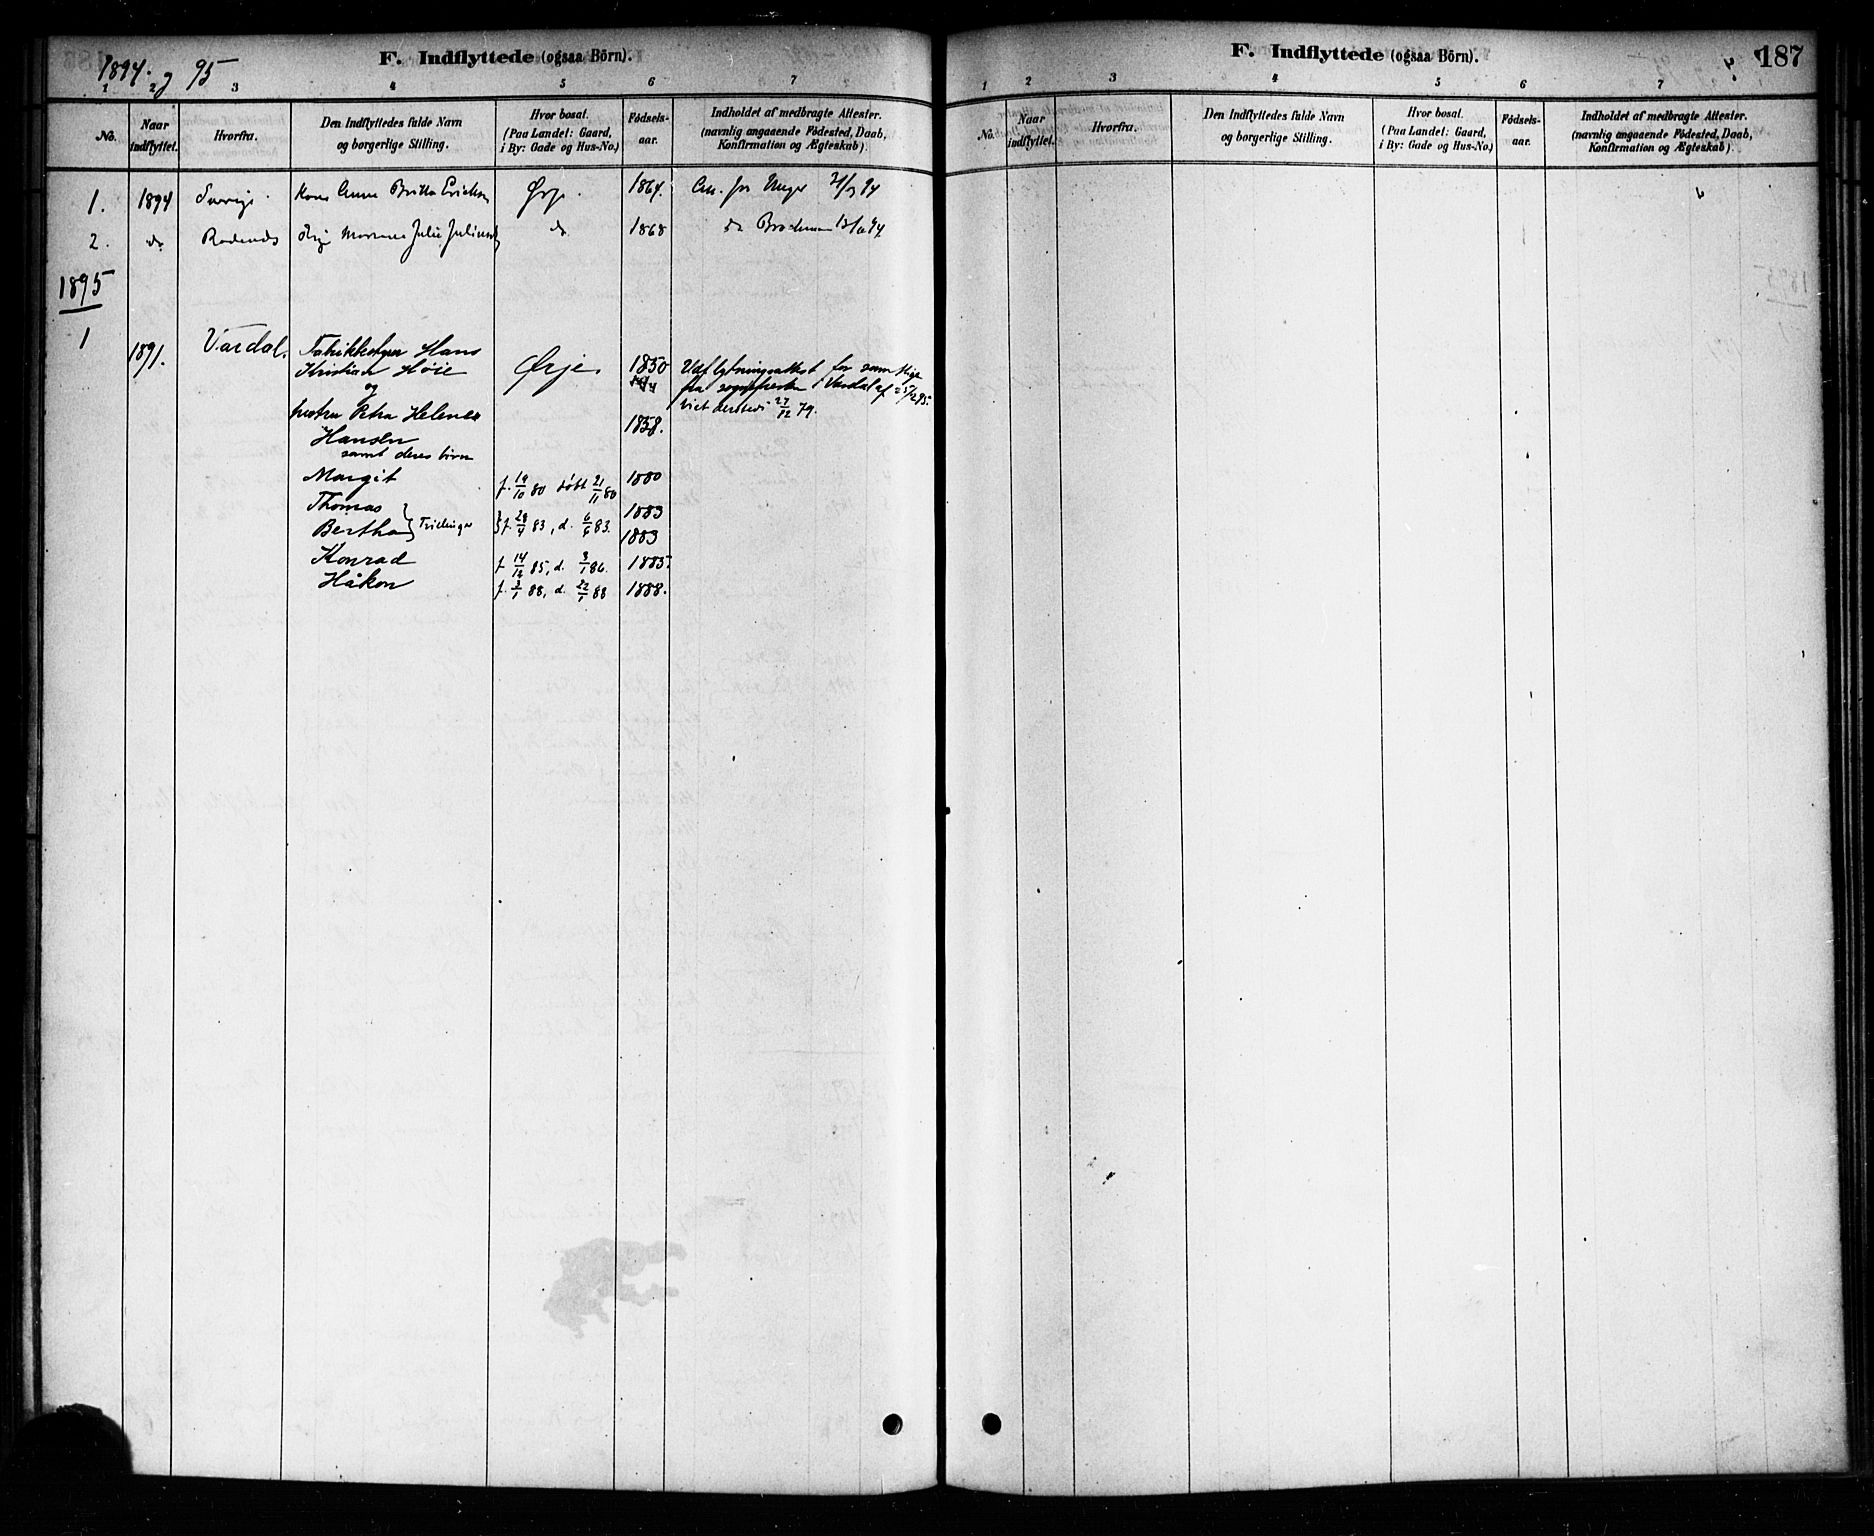 1894. og 95
F. Indflyttede (ogsaa Börn).
1 2 3 4 5 6 7
No.
Naar indflyttet.
Hvorfra.
Den Indflyttedes fulde Navn og borgerlige Stilling.
Hvor bosat. (Paa Landet: Gaard, i By: Gade og Hus-No.)
Födsels-aar.
Indholdet af medbragte Attester. (navnlig angaaende Födested, Daab, Konfirmation og Ægteskab).
1. 1894 Sverige Kone Anna Britta Ørje. 1864. Att. fra
2. do Rødenes Marianne Julie do 1868 do
1895
1 1891. Vardal. Fabrikbestyrer Hans
Kristian Höie Ørje. 1850 Udflytningsattest for samtlige
og fra sognepresten i Vardal af
hustru Petra Helene 1858. viet dersteds 27/12 79.
Hansen
samt deres börn
Margit f. 19/10 80 döbt 21/11 80 1880
Thomas 1883
Bertha } Tvillinger } f. 28/4 83, d. 6/6 83. 1883
Konrad f. 14/12 85, d. 3/1 86. 1885.
Håkon f. 3/1 88, d. 22/1 88 1888.
F. Indflyttede (ogsaa Börn).
187
1 2 3 4 5 6 7
No.
Naar indflyttet.
Hvorfra.
Den Indflyttedes fulde Navn og borgerlige Stilling.
Hvor bosat. (Paa Landet: Gaard, i By: Gade og Hus-No.)
Födsels-aar.
Indholdet af medbragte Attester. (navnlig angaaende Födested, Daab, Konfirmation og Ægteskab).